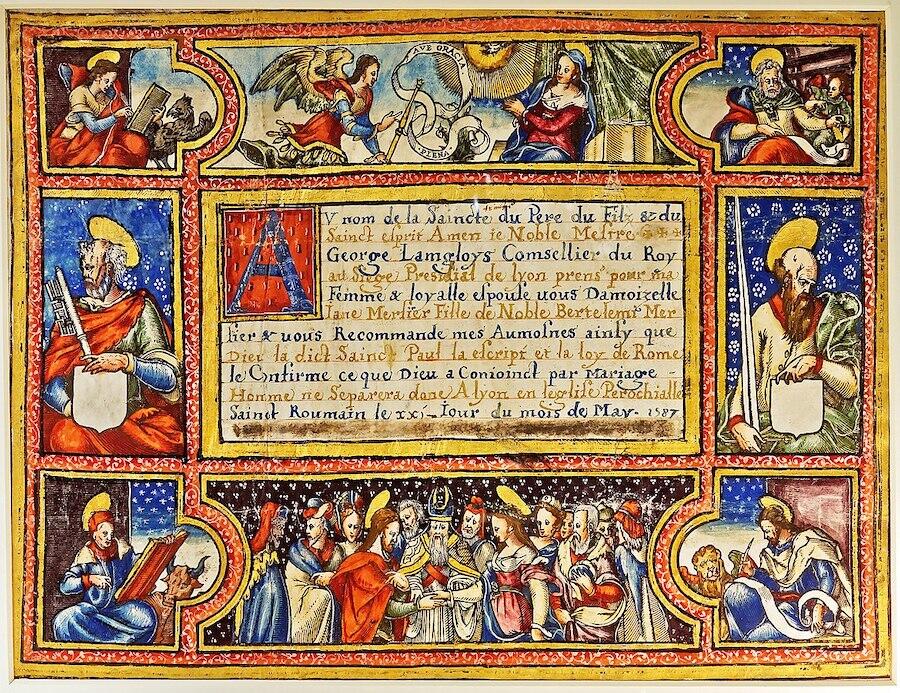 AVE GRACIA
PLENA
AV nom de la Saincte du Pere du Filz & du
Sainct esprit Amen ie Noble Mesire
George Lamgloys Comsellier du Roy
au Siege Presidial de lyon prens pour ma
Femme & loyalle espouse uous Damoizelle
Iane Merlier Fille de Noble Bertelemt Mer
lier & uous Recommande mes Aumosnes ainsy que
Dieu la dict Sainct Paul la escript et la loy de Rome
le Confirme ce que Dieu a Conioinct par Mariage
Homme ne Separera donc A lyon en leglise Perochialle
Sainct Roumain le xxi Iour du mois de May 1587